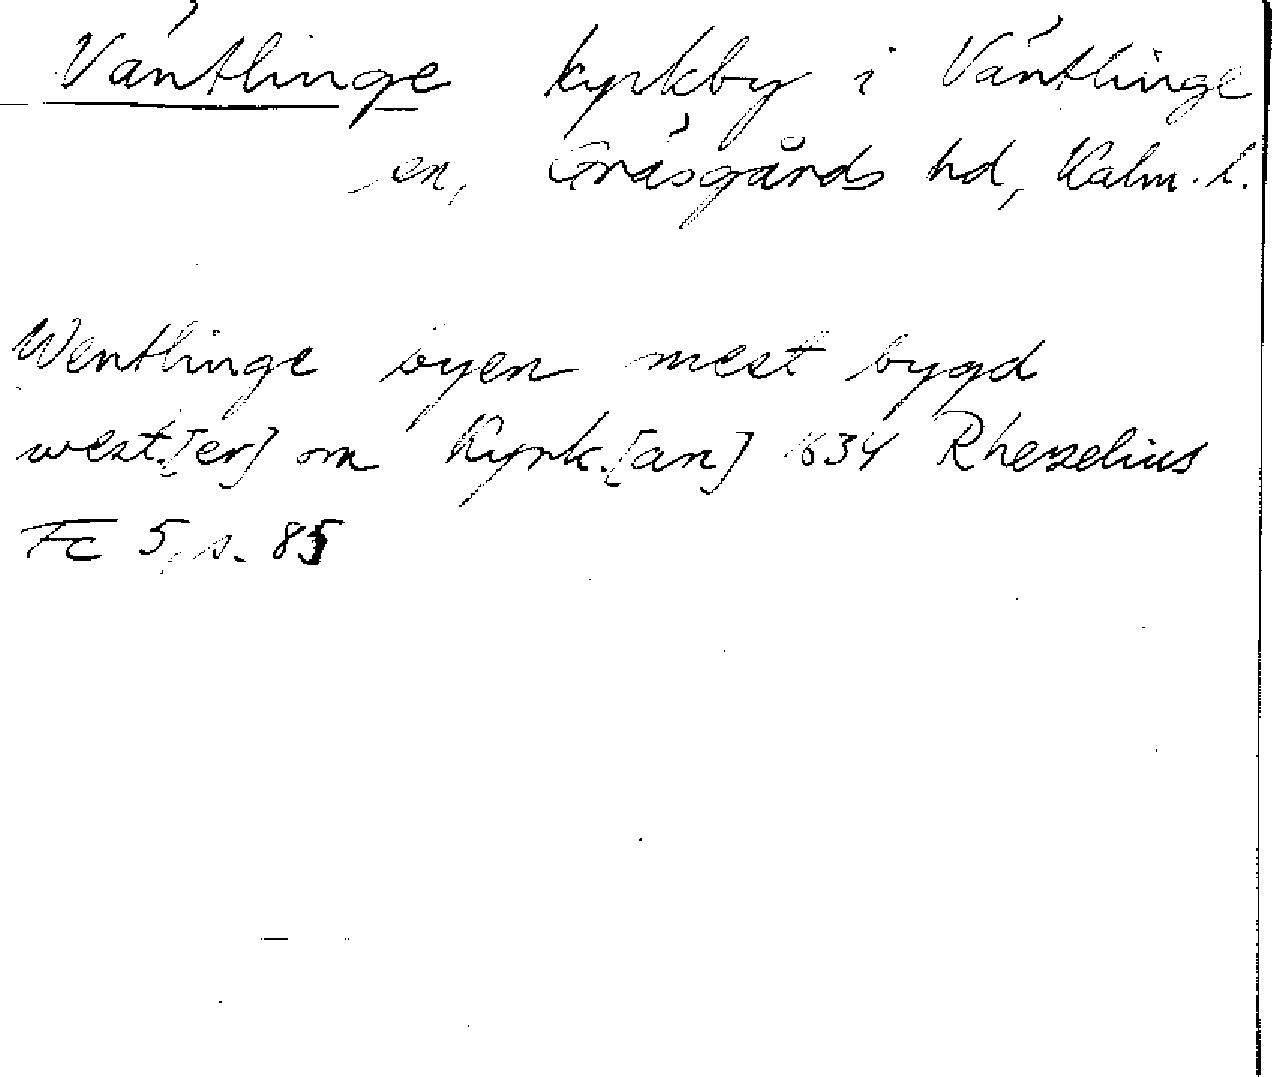 Väntlinge kyrkby i Väntlinge
sn, Gräsgårds hd, Kalm. l.
Wentlinge byen mest bygd
west.[er] om Kyrk.[an] 1634 Rhezelius
Fc 5, s. 85